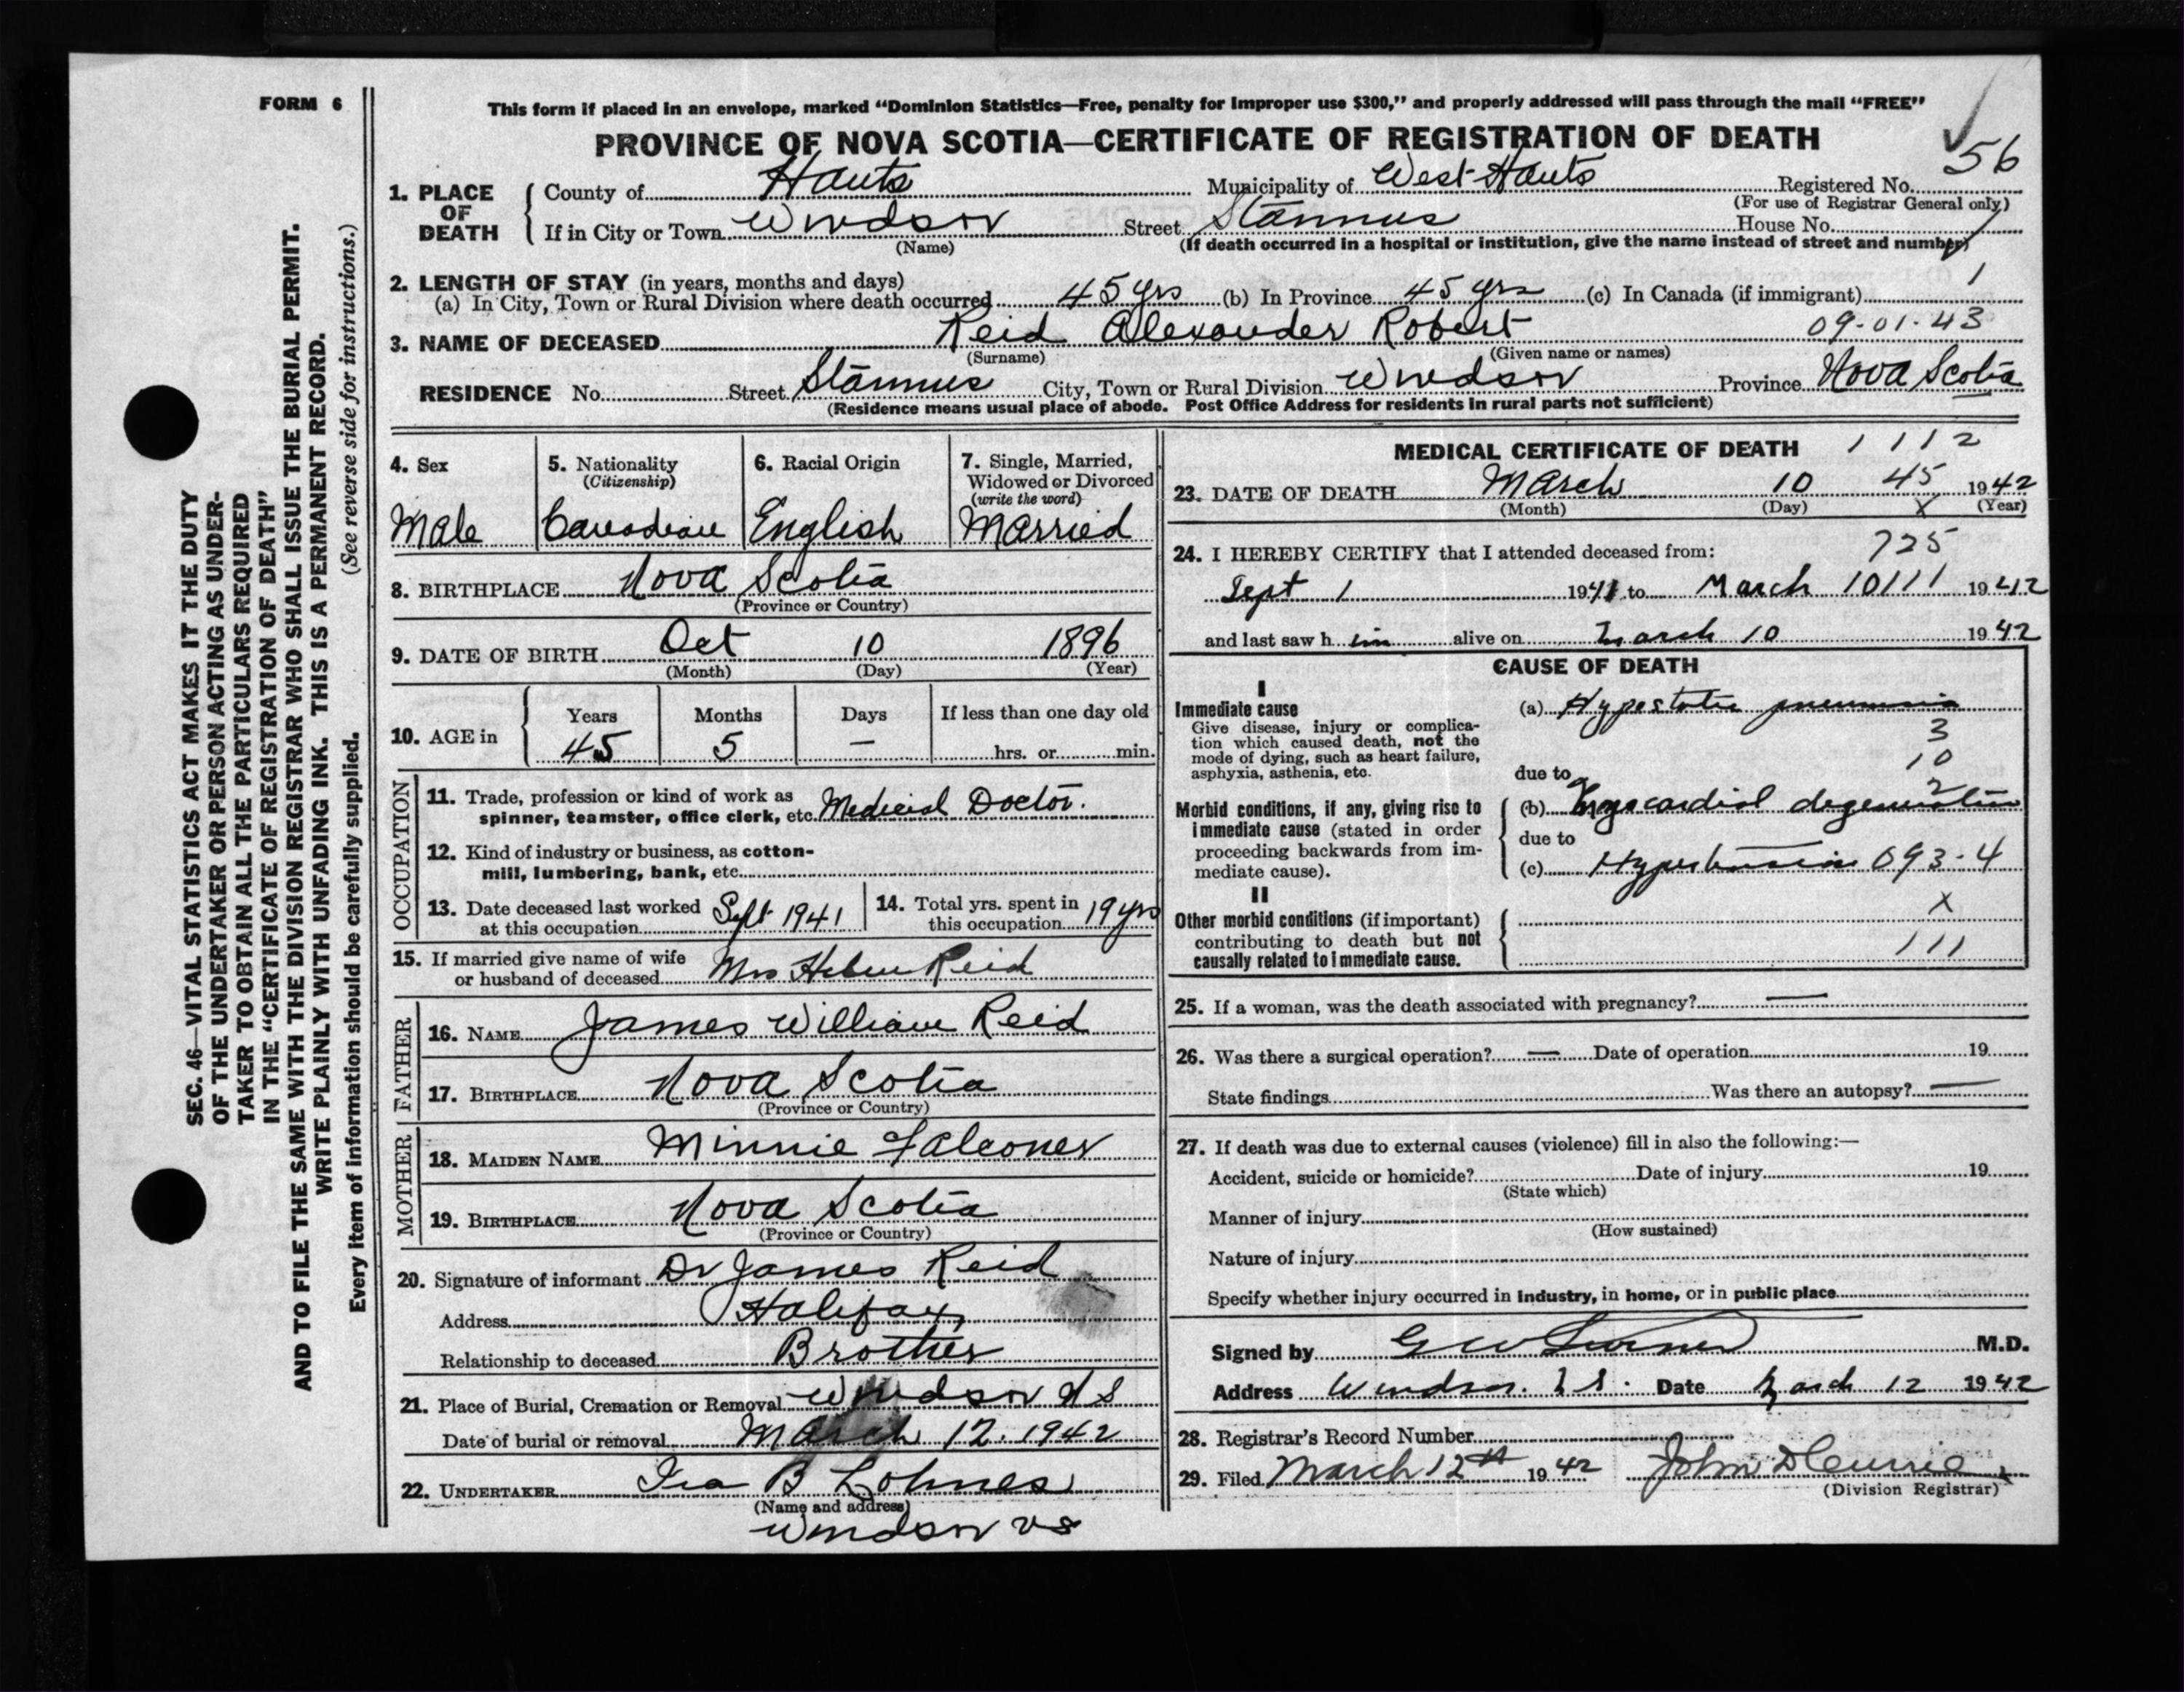 FORM 6
This form if placed in an envelope, marked “Dominion Statistics—Free, penalty for improper use $300,” and properly addressed will pass through the mail “FREE”
PROVINCE OF NOVA SCOTIA—CERTIFICATE OF REGISTRATION OF DEATH
56
1. PLACE OF DEATH County of Hants Municipality of West Hants Registered No.
(For use of Registrar General only)
If in City or Town Windsor Street Stannus House No.
(Name) (If death occurred in a hospital or institution, give the name instead of street and number)
2. LENGTH OF STAY (in years, months and days) 1
(a) In City, Town or Rural Division where death occurred 45 yrs (b) In Province 45 yrs (c) In Canada (if immigrant)
3. NAME OF DECEASED Reid Alexander Robert 09-01-43
(Surname) (Given name or names)
RESIDENCE No. Street Stannus City, Town or Rural Division Windsor Province Nova Scotia
(Residence means usual place of abode. Post Office Address for residents in rural parts not sufficient)
4. Sex 5. Nationality (Citizenship) 6. Racial Origin 7. Single, Married, Widowed or Divorced (write the word)
Male Canadian English Married
8. BIRTHPLACE Nova Scotia
(Province or Country)
9. DATE OF BIRTH Oct 10 1896
(Month) (Day) (Year)
10. AGE in Years Months Days If less than one day old
45 5 — hrs. or min.
OCCUPATION
11. Trade, profession or kind of work as spinner, teamster, office clerk, etc. Medical Doctor.
12. Kind of industry or business, as cotton-
mill, lumbering, bank, etc.
13. Date deceased last worked at this occupation Sept 1941 14. Total yrs. spent in this occupation 19 yrs
15. If married give name of wife or husband of deceased Mrs Helen Reid
FATHER
16. NAME James William Reid
17. BIRTHPLACE Nova Scotia
(Province or Country)
MOTHER
18. MAIDEN NAME Minnie Falconer
19. BIRTHPLACE Nova Scotia
(Province or Country)
20. Signature of informant Dr James Reid
Address Halifax,
Relationship to deceased Brother
21. Place of Burial, Cremation or Removal Windsor N S
Date of burial or removal March 12. 1942
22. UNDERTAKER Ira B Lohnes
(Name and address)
Windsor NS
MEDICAL CERTIFICATE OF DEATH 1112
23. DATE OF DEATH March 10 45 1942
(Month) (Day) X (Year)
24. I HEREBY CERTIFY that I attended deceased from: 725
Sept 1 1941 to March 10 111 1942
and last saw h im alive on March 10 1942
CAUSE OF DEATH
I
Immediate cause (a) Hypostatic pneumonia
Give disease, injury or complica-
tion which caused death, not the 3
mode of dying, such as heart failure, 10
asphyxia, asthenia, etc. due to 2
Morbid conditions, if any, giving rise to (b) Myocardial degeneration
immediate cause (stated in order due to
proceeding backwards from im-
mediate cause). (c) Hypertension 093-4
II
Other morbid conditions (if important) X
contributing to death but not 111
causally related to immediate cause.
25. If a woman, was the death associated with pregnancy? —
26. Was there a surgical operation? — Date of operation 19
State findings Was there an autopsy? —
27. If death was due to external causes (violence) fill in also the following:—
Accident, suicide or homicide? Date of injury 19
(State which)
Manner of injury
(How sustained)
Nature of injury
Specify whether injury occurred in industry, in home, or in public place
Signed by G W Turner M.D.
Address Windsor. N S. Date March 12 1942
28. Registrar's Record Number
29. Filed March 12th 1942 John D Currie
(Division Registrar)
SEC. 46—VITAL STATISTICS ACT MAKES IT THE DUTY
OF THE UNDERTAKER OR PERSON ACTING AS UNDER-
TAKER TO OBTAIN ALL THE PARTICULARS REQUIRED
IN THE “CERTIFICATE OF REGISTRATION OF DEATH”
AND TO FILE THE SAME WITH THE DIVISION REGISTRAR WHO SHALL ISSUE THE BURIAL PERMIT.
WRITE PLAINLY WITH UNFADING INK. THIS IS A PERMANENT RECORD.
Every item of information should be carefully supplied. (See reverse side for instructions.)